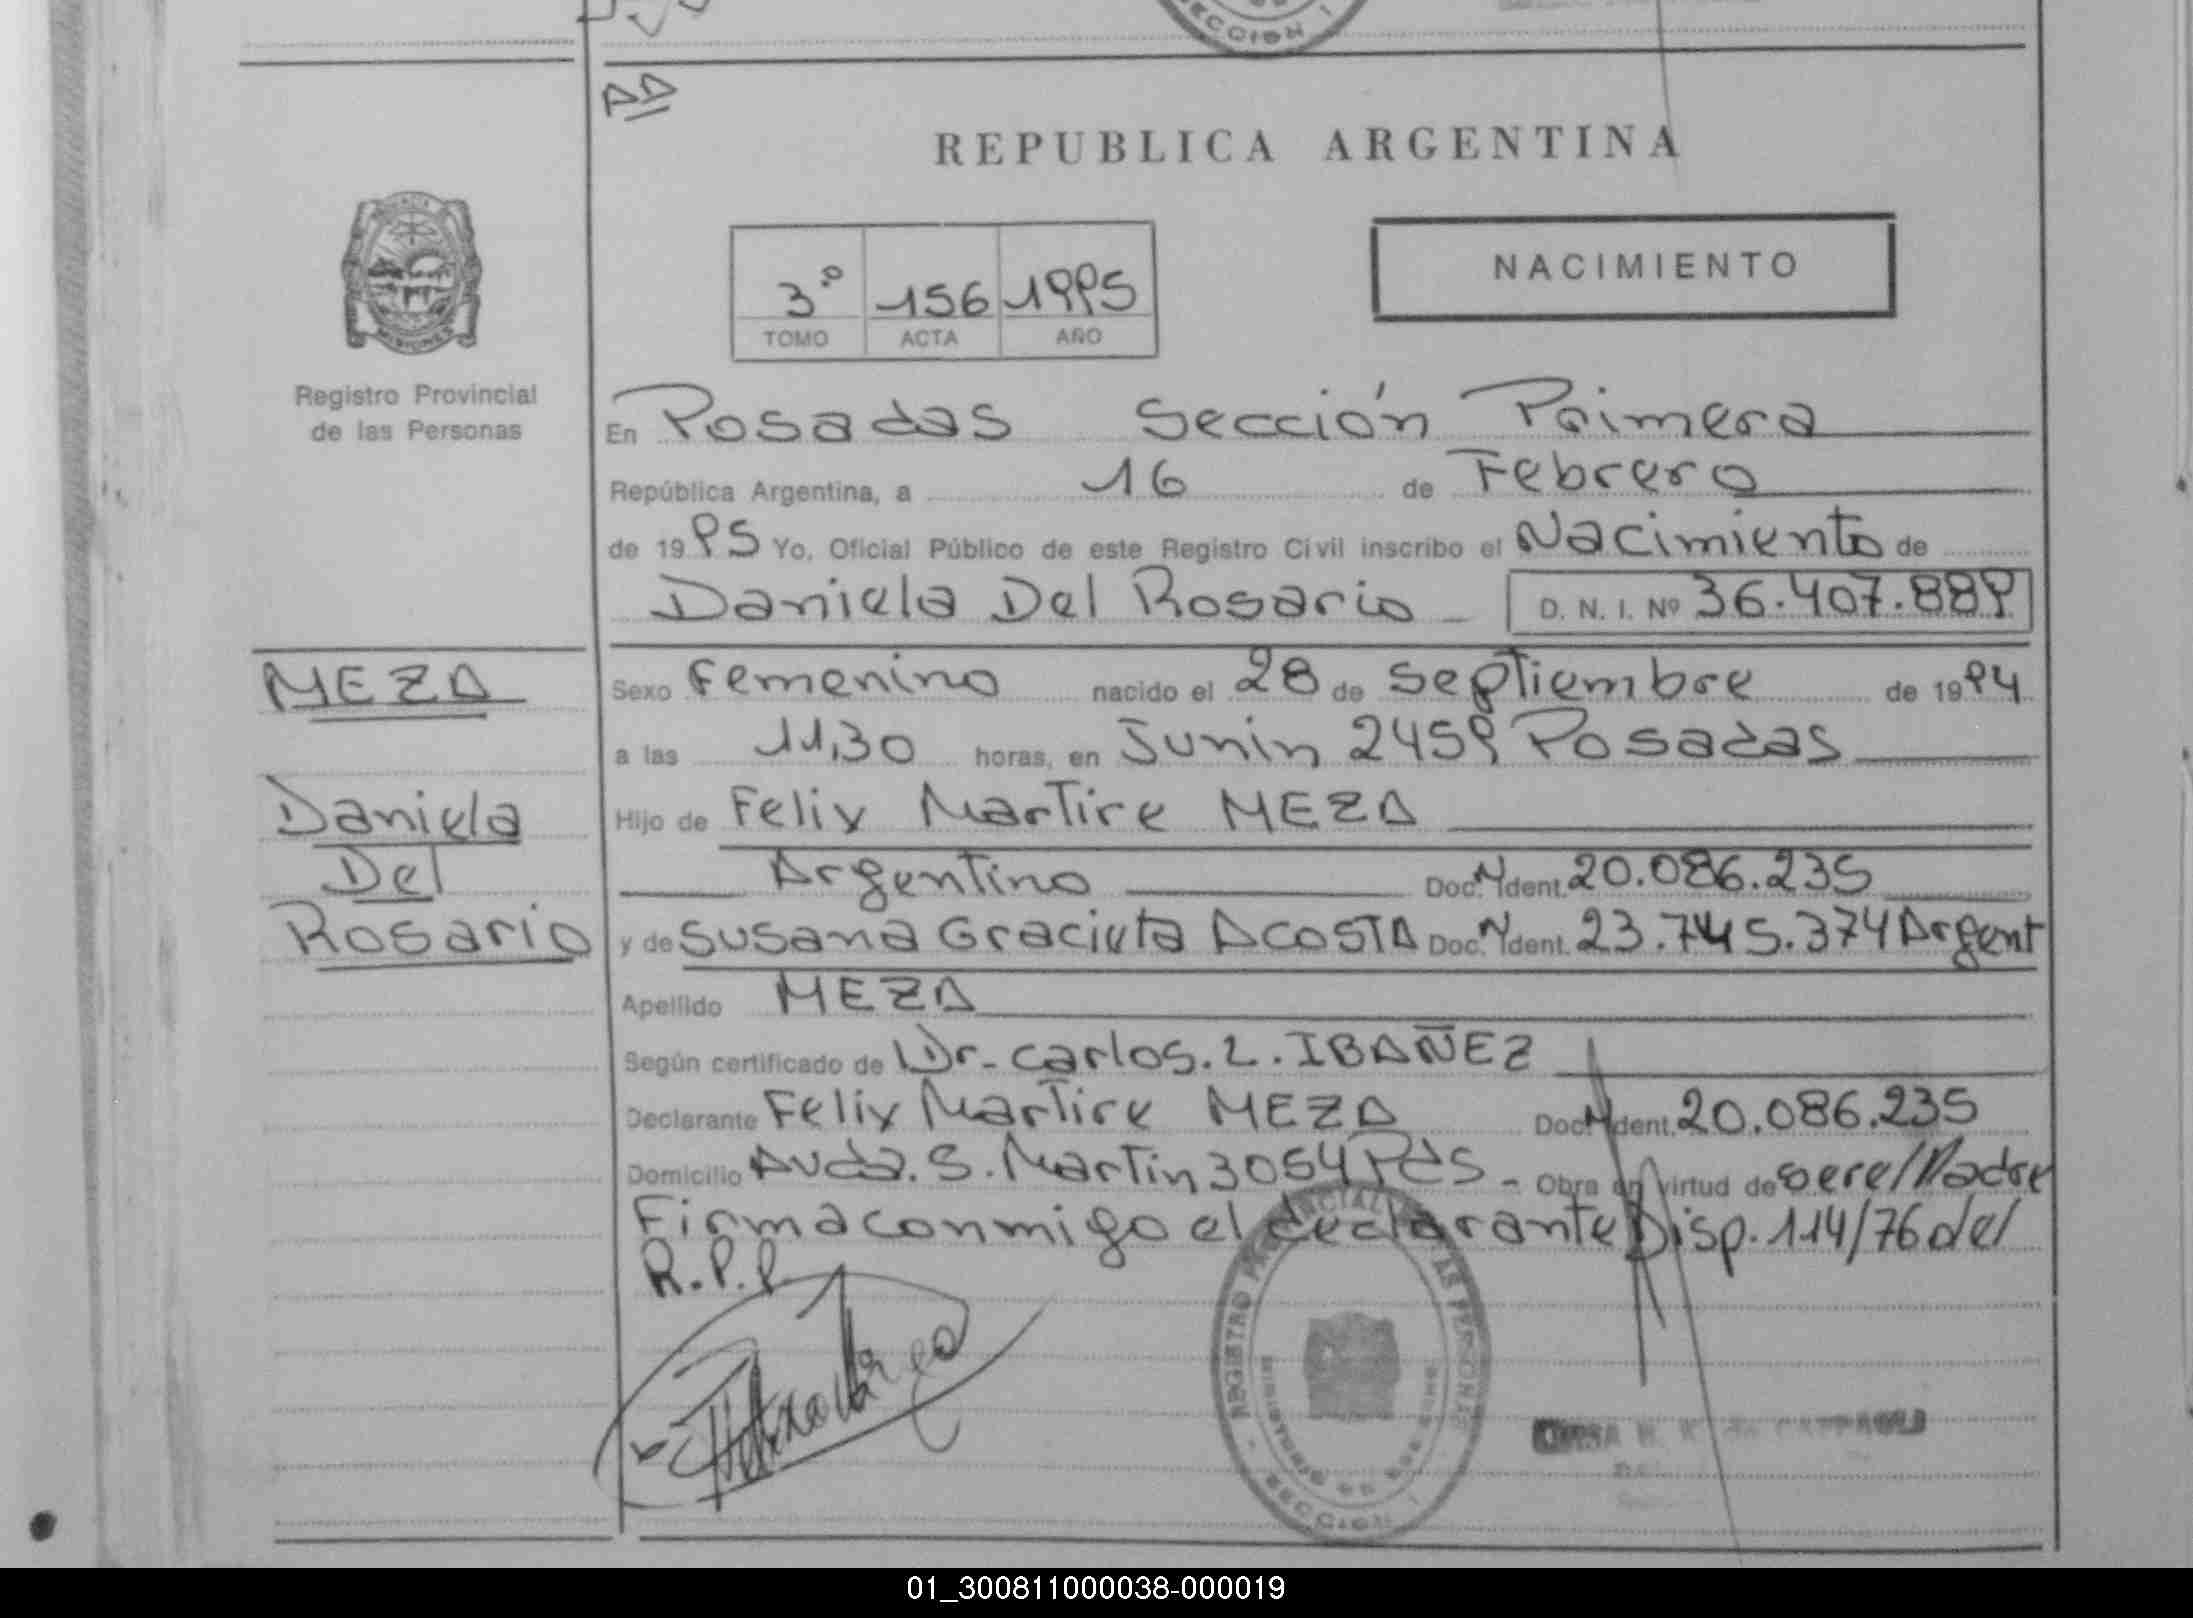 SECCION I
AD
REPUBLICA ARGENTINA
3º 156 1995
TOMO ACTA AÑO
NACIMIENTO
MISIONES
Registro Provincial
de las Personas
En Posadas Sección Primera
República Argentina, a 16 de Febrero
de 1995 Yo, Oficial Público de este Registro Civil inscribo el Nacimiento de
Daniela Del Rosario D. N. I. Nº 36.407.889
MEZA
Daniela
Del
Rosario
Sexo Femenino nacido el 28 de Septiembre de 1994
a las 11,30 horas, en Junin 2459 Posadas
Hijo de Felix Martire MEZA
Argentino Doc. N Ident. 20.086.235
y de Susana Graciela ACOSTA Doc. N Ident. 23.745.374 Argent
Apellido MEZA
Según certificado de Dr. Carlos. L. IBAÑEZ
Declarante Felix Martire MEZA Doc. N Ident. 20.086.235
Domicilio Avda. S. Martin 3054 Pdas - Obra en virtud de ser el Padre
Firma conmigo el declarante Disp. 114/76 del
R.P.P.
REGISTRO PROVINCIAL DE LAS PERSONAS
MINISTERIO DE GOBIERNO
SECCION I
01_300811000038-000019